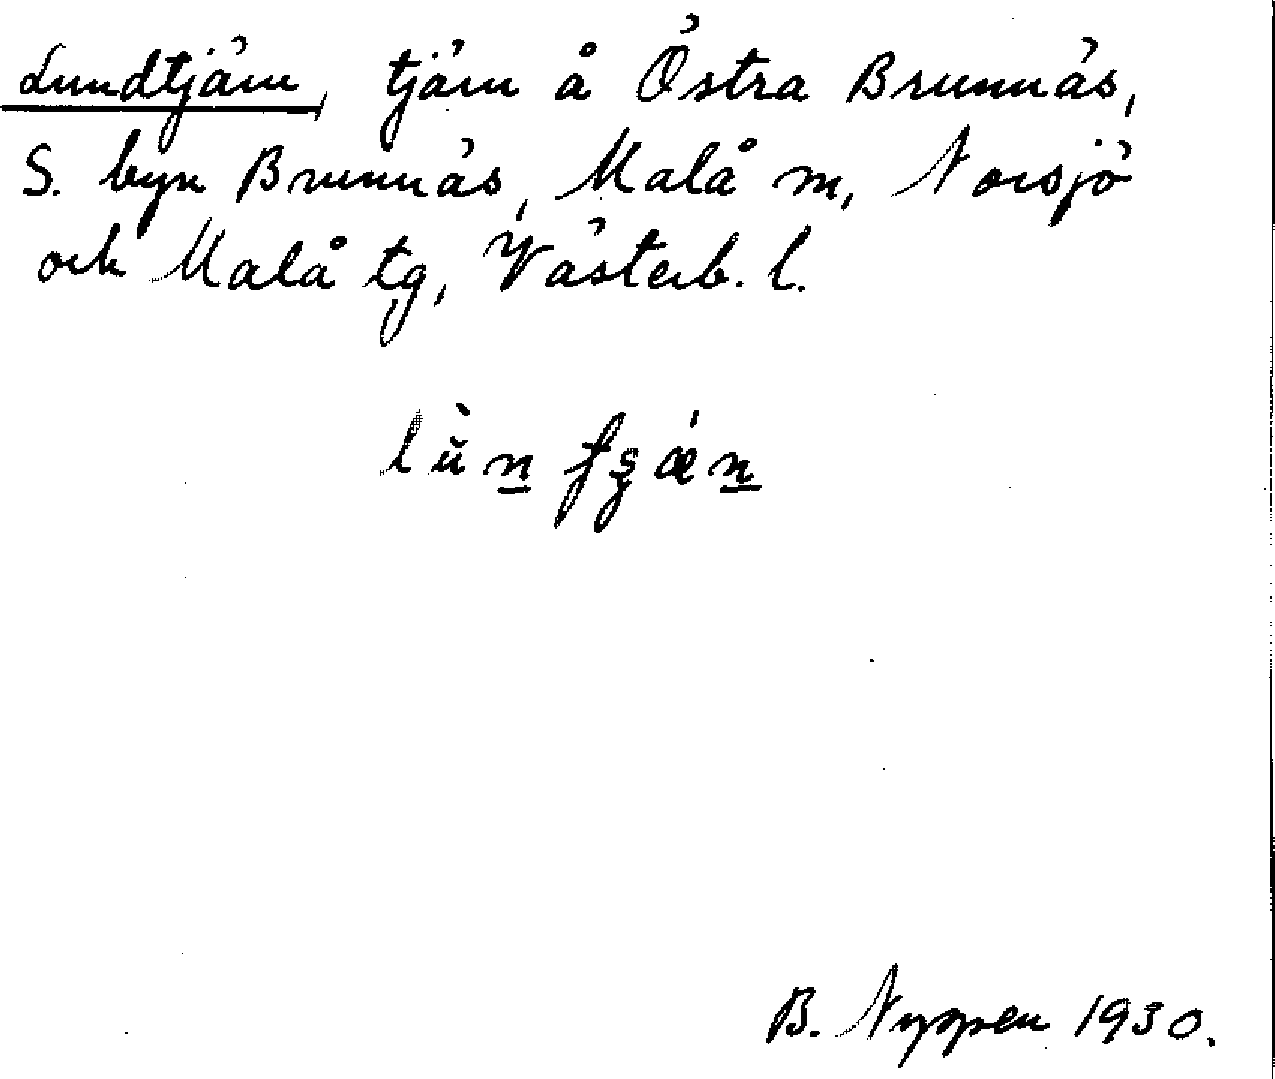 Lundtjärn, tjärn å Östra Brunnäs,
S. byn Brunnäs, Malå sn, Norsjö
och Malå tg, Västerb. l.
B. Nyppen 1930.